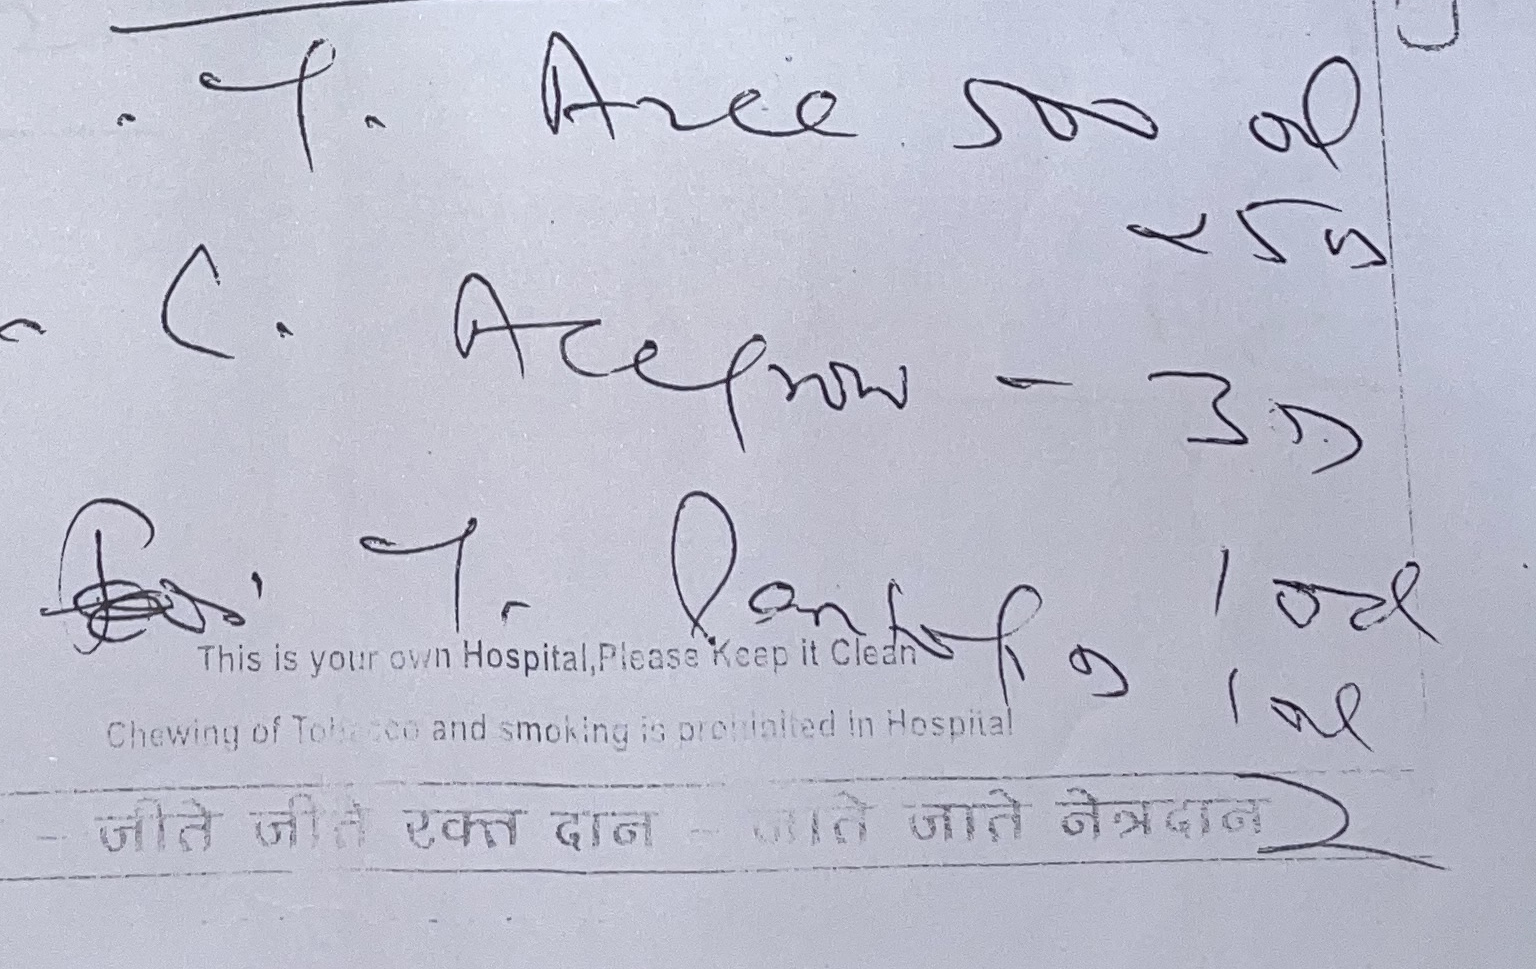 . T. Azee 500 od
x 5D
C. Aceprow - 3D
T. Pantop D 1 od
This is your own Hospital,Please Keep it Clean
1 od
Chewing of Tobacco and smoking is prohibited in Hospital
- जीते जीते रक्त दान - जाते जाते नेत्रदान